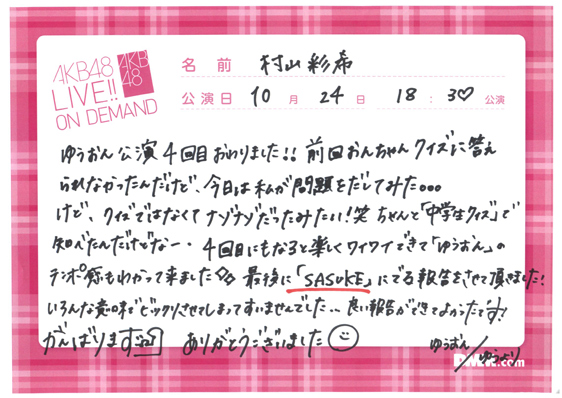 AKB48
LIVE!!
ON DEMAND
AKB
48
名前 村山彩希
公演日 10月24日 18:30公演
ゆうおん公演4回目おわりました!! 前回おんちゃんクイズに答え
られなかったんだけど、今日は私が問題をだしてみた。。。
けど、クイズではなくてナゾナゾだったみたい!笑 ちゃんと「中学生クイズ」で
知べたんだけどなー・4回目にもなると楽しくワイワイできて「ゆうおん」の
テンポ感もわかって来ました 最後に「SASUKE」にでる報告をさせて頂きました!
いろんな意味でビックリさせてしまってすいませんでした.. 良い報告ができてよかったです!
がんばりますね ありがとうございました
ゆうおん/ゆうより
DMM.com